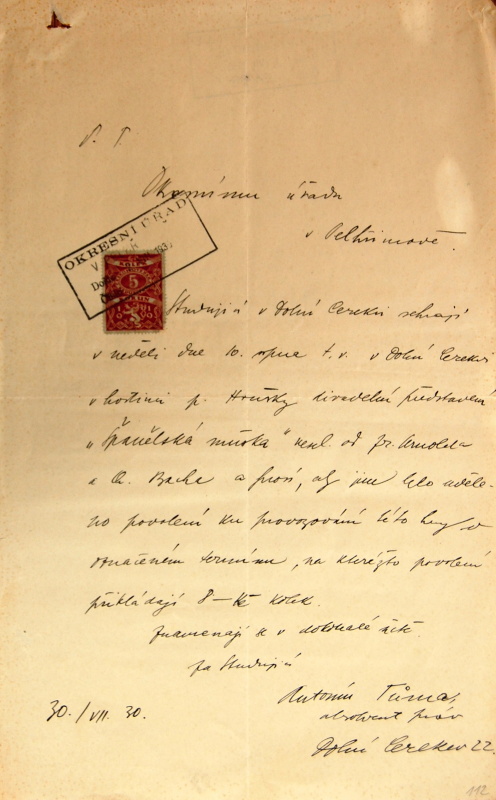 P. T.
Okresnímu úřadu
v Pelhřimově.
OKRESNÍ ÚŘAD
V
Do
5
Studující v Dolní Cerekvi sehrají
v neděli dne 10. srpna t. r. v Dolní Cerekvi
v hostinci p. Houšky divadelní představení
"Španělská muška" vesel. od Fr. Arnolda
a A. Bacha a prosí, aby jim bylo uděle-
no povolení ku provozování této hry v
označeném termínu, na kteréžto povolení
přikládají 8 - Kč kolek.
Znamenají se v dokonalé úctě
za Studující
Antonín Tůma,
30./VII. 30.
absolvent práv
Dolní Cerekev 22.
112